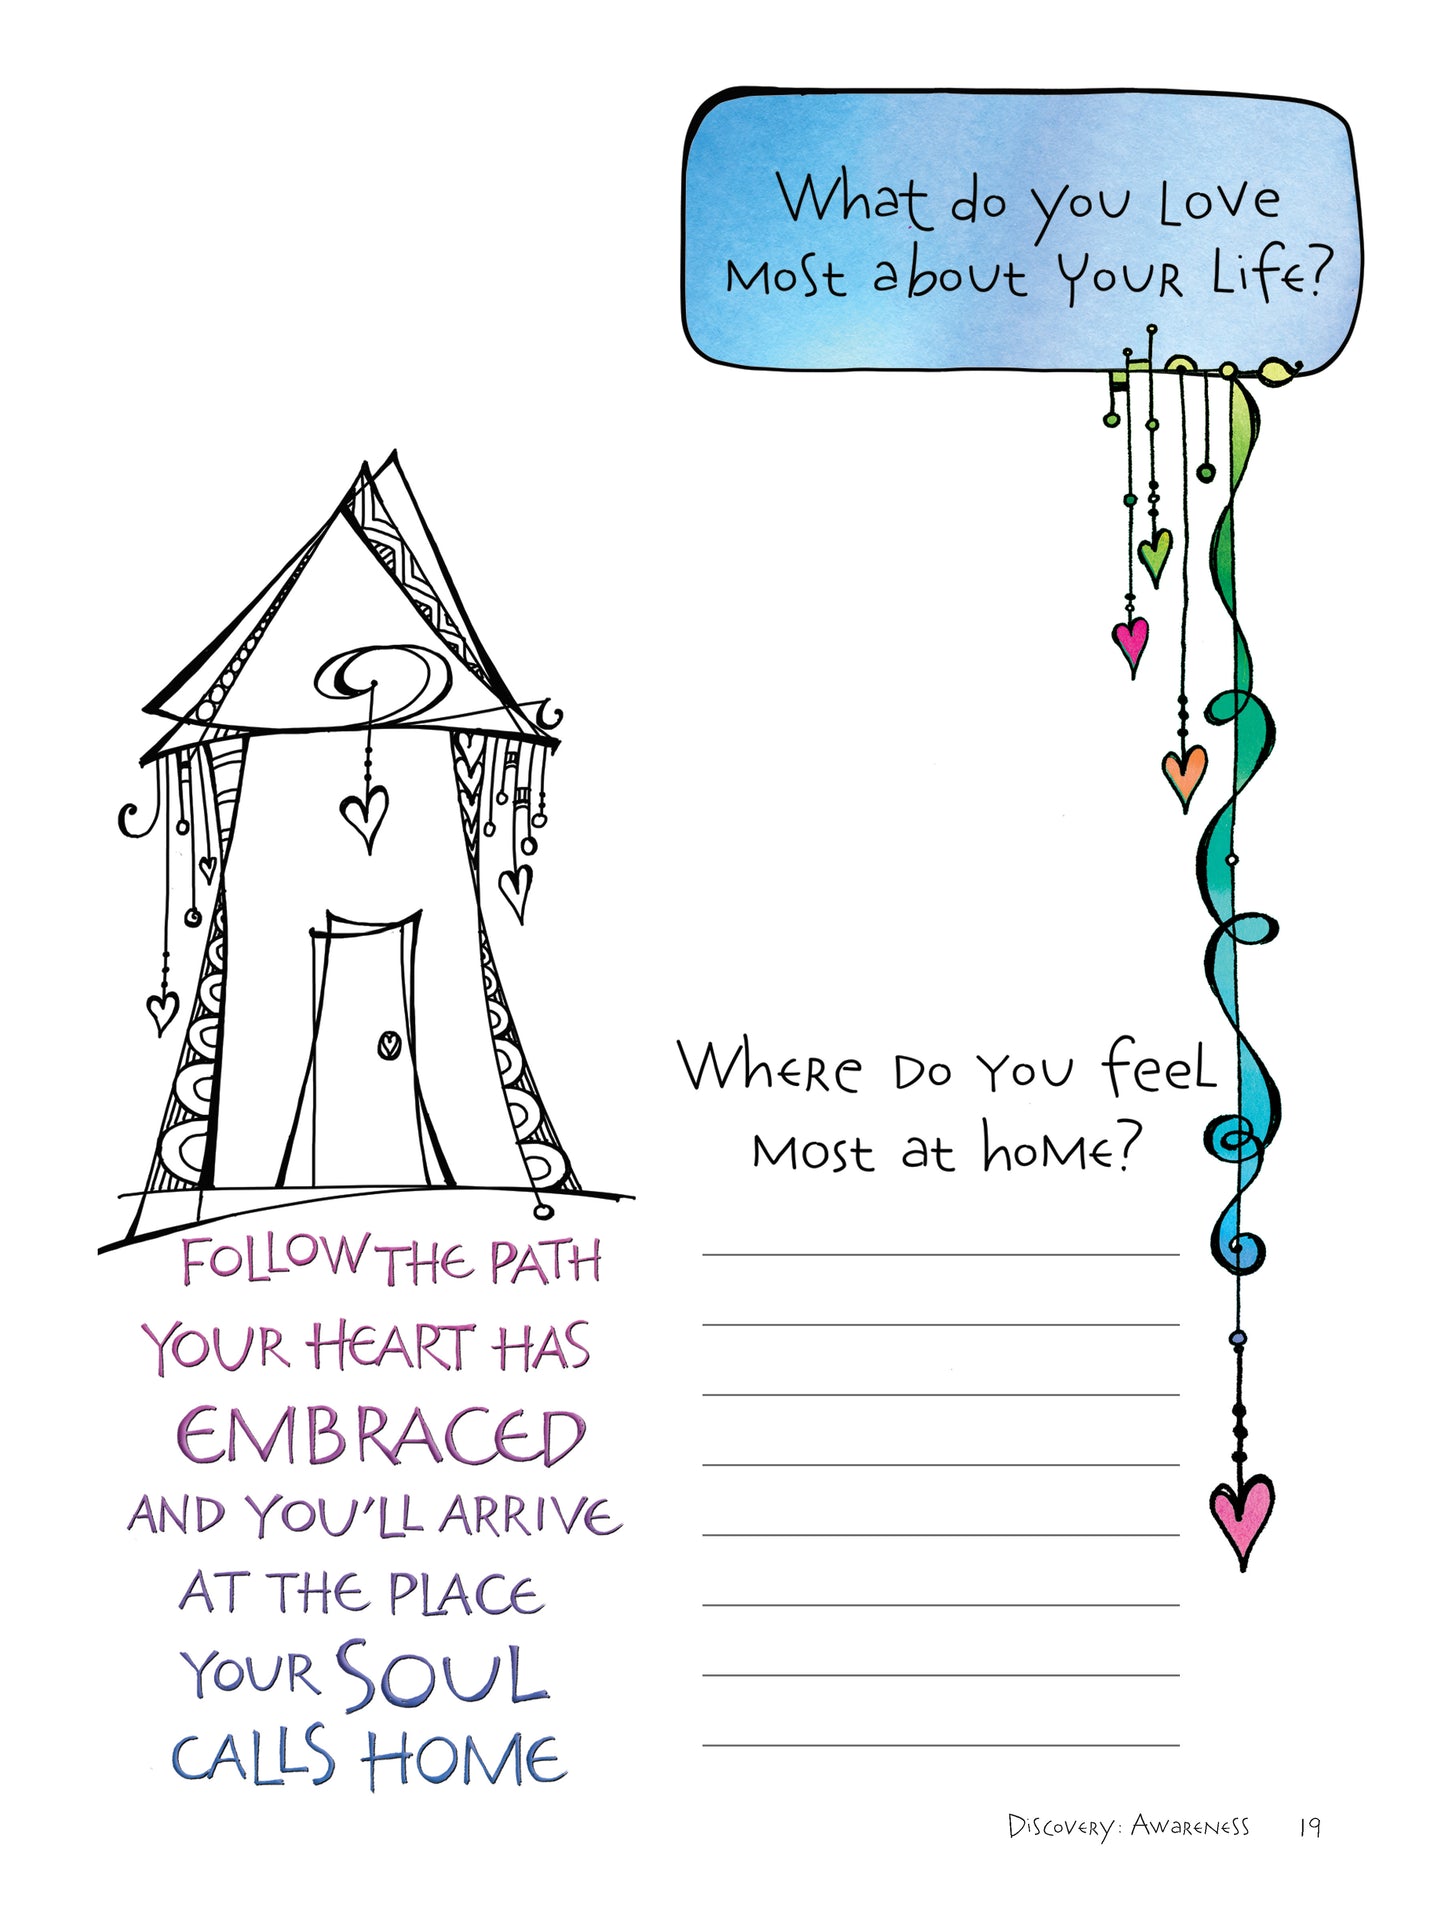 What do you Love
Most about Your Life?
Where Do You feel
Most at home?
Follow the path
your heart has
embraced
and you'll arrive
at the place
your soul
calls home
Discovery: Awareness 19